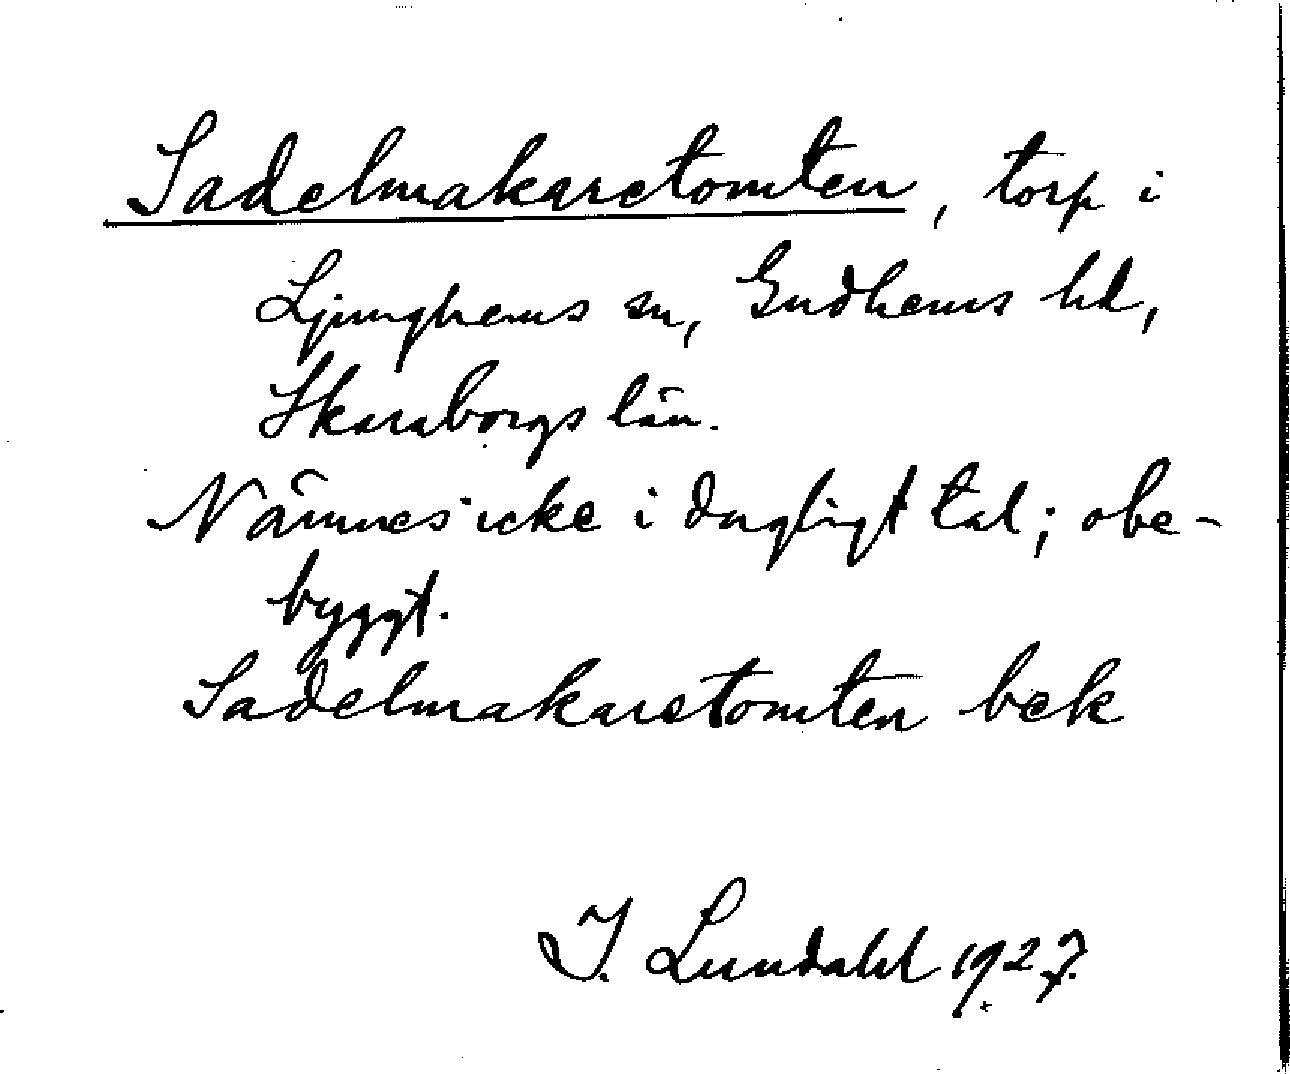 Sadelmakaretomten, torp i
Ljunghems sn, Gudhems hd,
Skaraborgs län.
Nämnes icke i dagligt tal; obe-
byggt.
Sadelmakaretomten bek
I. Lundahl 1927.